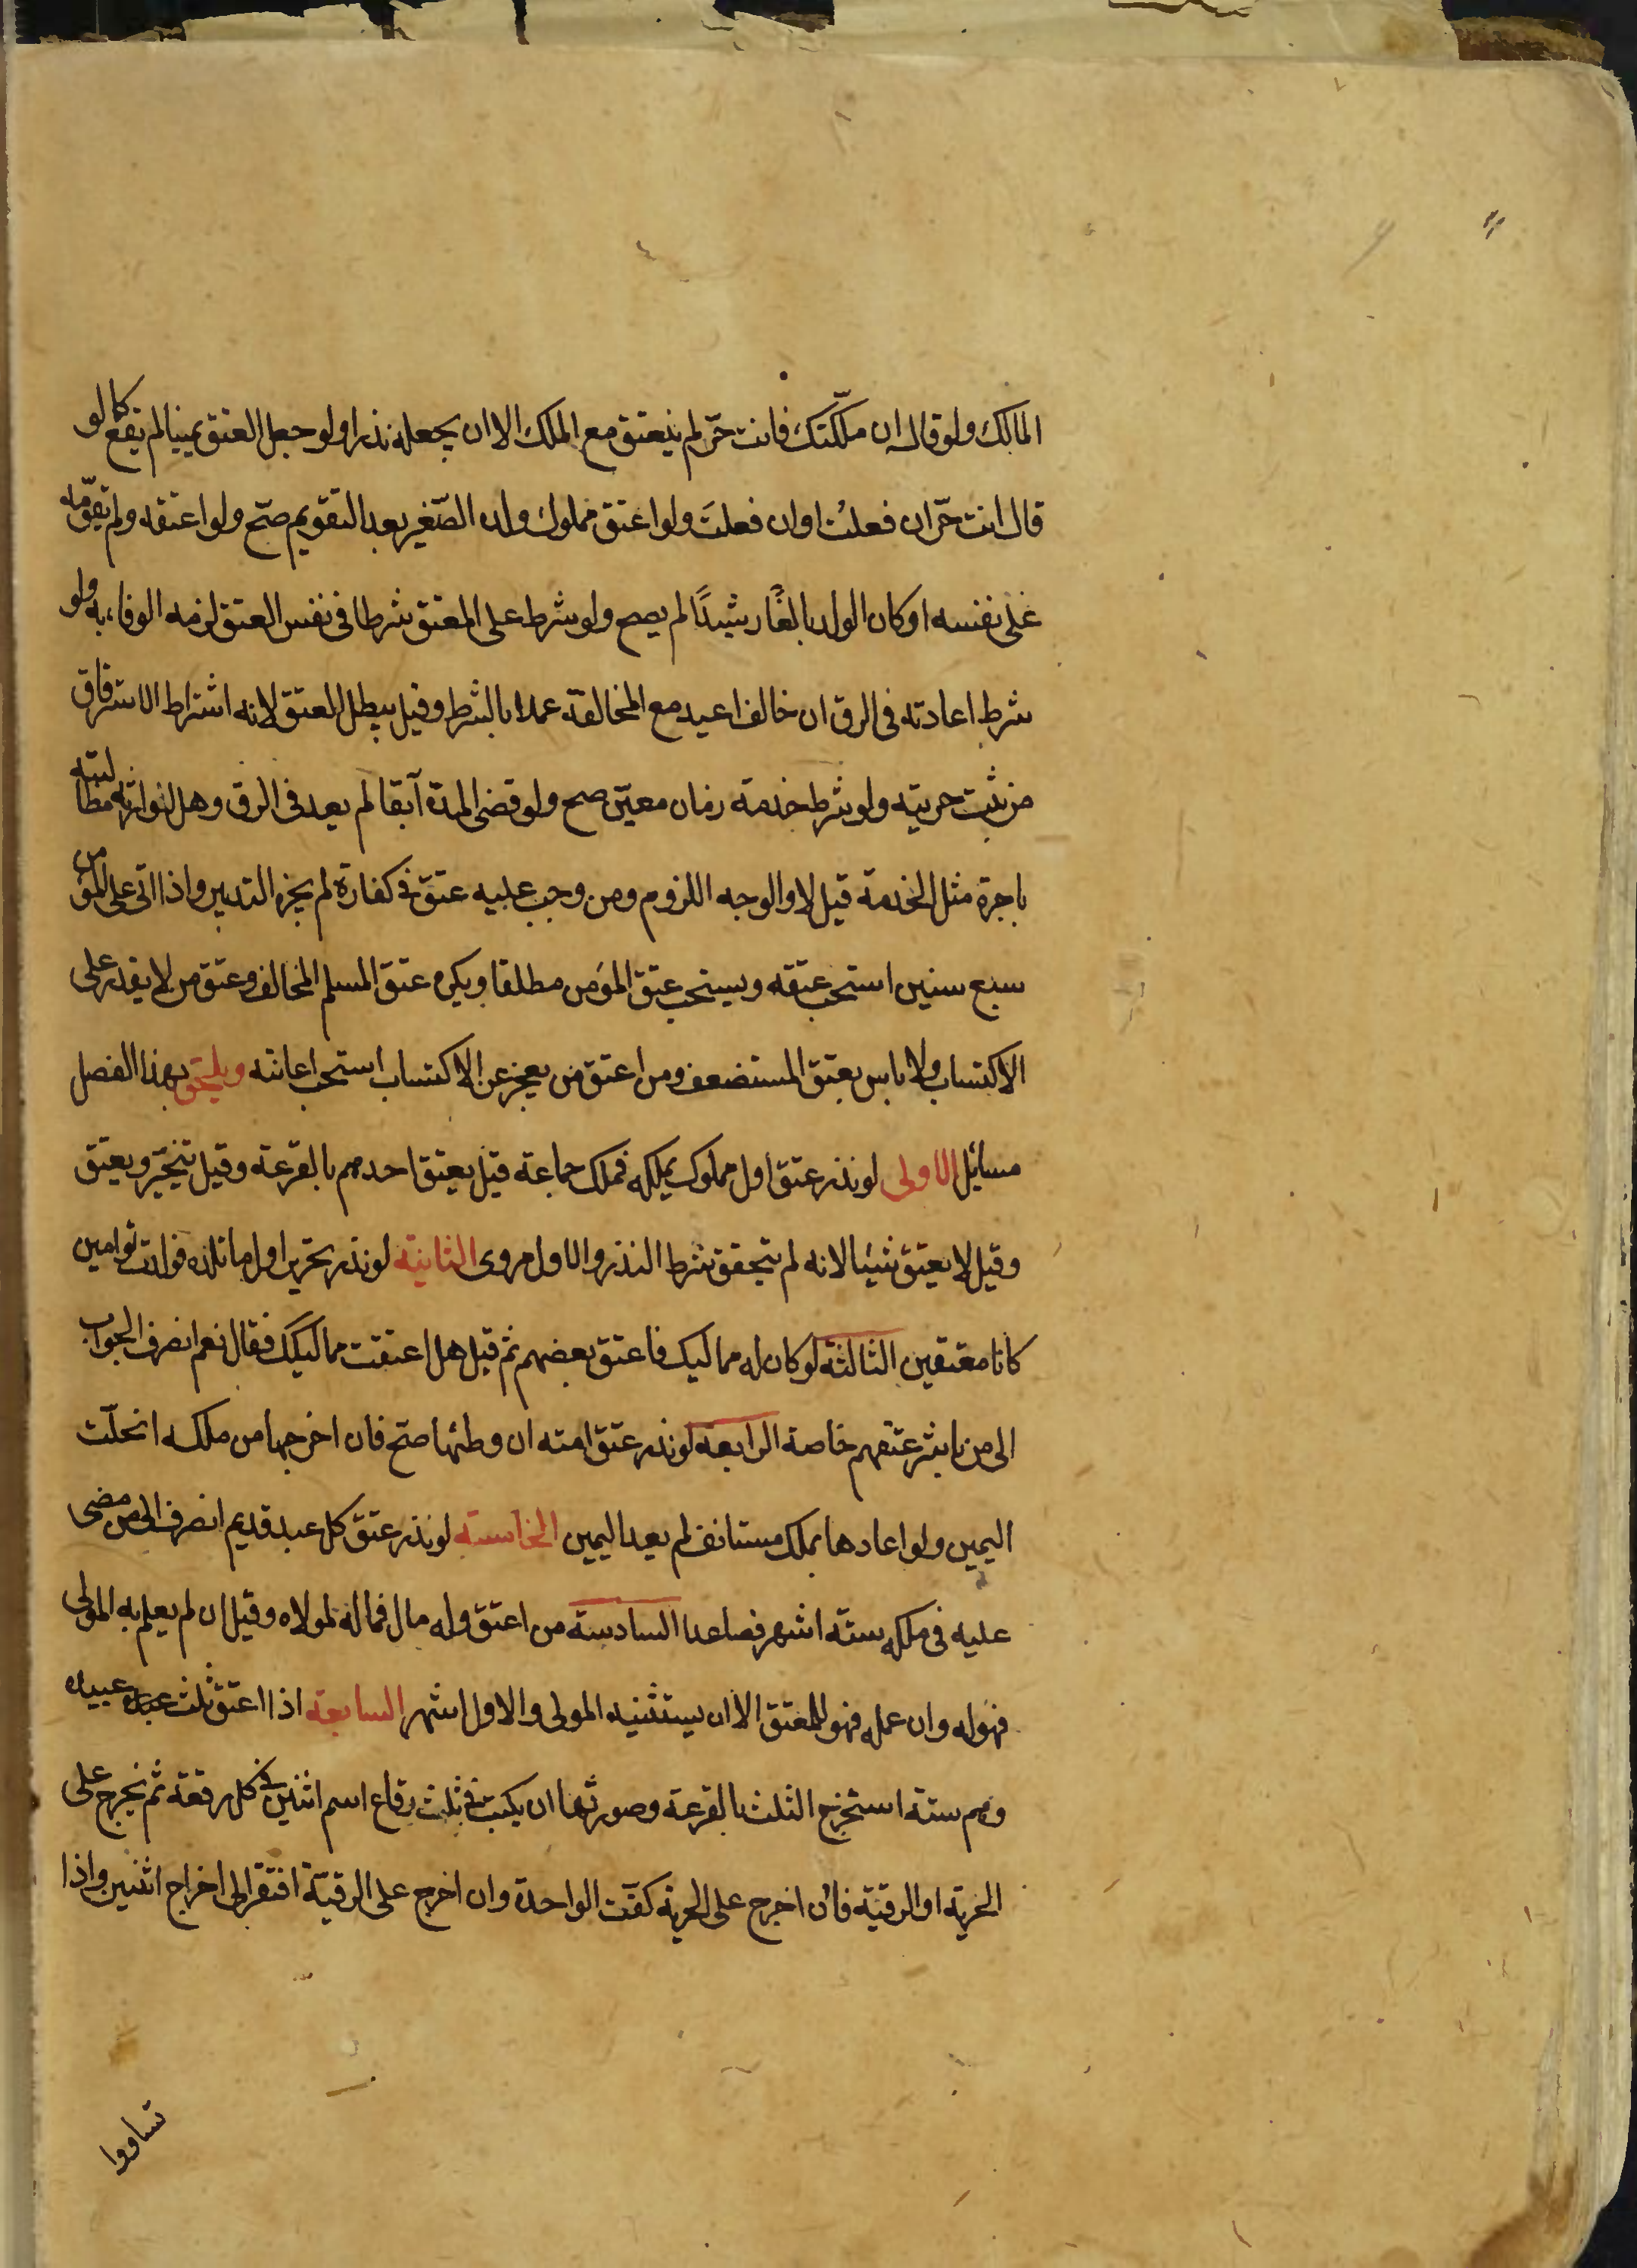 المالك ولو قال ان ملكتك فانت حرّ لم ينعتق مع الملك الا ان يجعله نذرا ولو جعل العتق يمينا لم يقع كما لو
قال انت حرّ ان فعلتُ او ان فعلتَ ولو اعتق مملوك ولده الصّغير بعد التقويم صحّ ولو اعتقه ولم يقوّمه
على نفسه او كان الولد بالغًا رشيدًا لم يصح ولو شرط على المعتق شرطا فى نفس العتق لزمه الوفاء به ولو
شرط اعادته فى الرق ان خالف اعيد مع المخالفة عملا بالشرط وقيل يبطل العتق لانه اشتراط الاسترقاق
من ثبت حريته ولو شرط خدمة زمان معيّن صح ولو قضى المدة آبقا لم يعد فى الرق وهل لورثته مطالبته
باجرة مثل الخدمة قيل لا والوجه اللزوم ومن وجب عليه عتق فى كفارة لم يجزه التدبير واذا اتى على المؤمن
سبع سنين استحب عتقه ويستحب عتق المؤمن مطلقا ويكره عتق المسلم المخالف وعتق من لا يقدر على
الاكتساب ولا باس بعتق المستضعف ومن اعتق من يعجز عن الاكتساب استحب اعانته ويلحق بهذا الفصل
مسائل الاولى لو نذر عتق اول مملوك يملكه فملك جماعة قيل يعتق احدهم بالقرعة وقيل يتخيّر ويعتق
وقيل لا يعتق شيئا لانه لم يتحقق شرط النذر والاول مروى الثانية لو نذر تحرير اول ما تلده فولدت توامين
كانا معتقين الثالثة لو كان له مماليك فاعتق بعضهم ثم قيل هل اعتقت مماليكك فقال نعم انصرف الجواب
الى من باشر عتقهم خاصة الرابعة لو نذر عتق امته ان وطئها صح فان اخرجها من ملكه انحلّت
اليمين ولو اعادها بملك مستانف لم يعد اليمين الخامسة لو نذر عتق كل عبد قديم انصرف الى من مضى
عليه فى ملكه ستة اشهر فصاعدا السادسة من اعتق وله مال فماله لمولاه وقيل ان لم يعلم به المولى
فهو له وان علمه فهو للمعتق الا ان يستثنيه المولى والاول اشهر السابعة اذا اعتق ثلث عبيده
وهم ستة استخرج الثلث بالقرعة وصورتها ان يكتب فى ثلث رقاع اسم اثنين فى كل رقعة ثم نخرج على
الحرية او الرقيّة فان اخرج على الحرية كفت الواحدة وان اخرج على الرقيّة افتقر الى اخراج اثنين واذا
تساووا